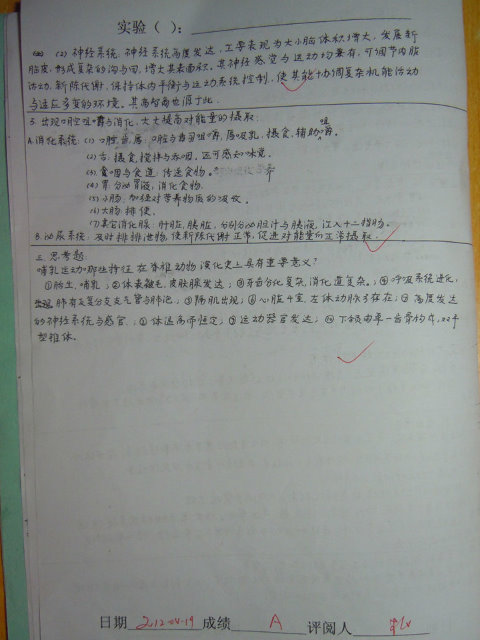 实验（ ）：
(2) 神经系统：神经系统高度发达，主要表现为大小脑体积增大，发展新
脑皮，形成复杂的沟与回，增大其表面积。其神经感觉与运动均兼有，可调节内脏
活动，新陈代谢，保持体内平衡与运动系统控制，使其能协调复杂机能活动
与适应多变的环境。其高智商也源于此。
5. 出现口腔咀嚼与消化，大大提高对能量的摄取：
A. 消化系统：(1) 口腔、齿、唇：口腔与齿司咀嚼，唇吸乳、摄食、辅助咀嚼。
(2) 舌：摄食，搅拌与吞咽。还可感知味觉。
(3) 食咽与食道：传送食物。
(4) 胃：分泌胃液，消化食物。
(5) 小肠：加强对营养物质的吸收。
(6) 大肠：排便。
(7) 其它消化腺：肝脏，胰脏。分别分泌胆汁与胰液，注入十二指肠。
B. 泌尿系统：及时排排泄物，使新陈代谢正常，促进对能量的正常摄取。
三. 思考题
哺乳动物哪些特征在脊椎动物演化史上具有重要意义？
①胎生、哺乳；②体表被毛，皮肤腺发达；③牙齿分化复杂，消化道复杂。；④呼吸系统进化，
出现肺有支复分支支气管与肺泡；⑤隔肌出现；⑥心脏4室，左体动脉弓存在；⑦高度发达
的神经系统与感官；⑧体温高而恒定；⑨运动器官发达；⑩下颌由单一齿骨构成，双平
型椎体。
日期 2012-04-19 成绩 A 评阅人